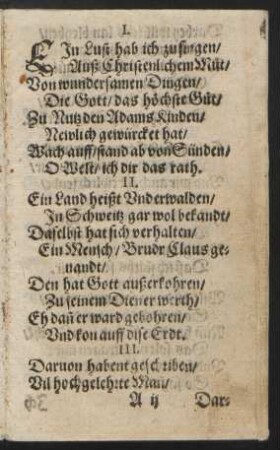 I.
EIn Lust hab ich zu singen/
Auß Christenlichem Müt/
Von wundersamen Dingen/
Die Gott/ das höchste Güt/
Zu Nutz den Adams Kinden/
Newlich gewürcket hat/
Wach auff/ stand ab von Sünden/
O Welt/ ich dir das rath.
II.
Ein Land heißt Vnderwalden/
In Schweitz gar wol bekandt/
Daselbst hat sich verhalten/
Ein Mensch/ Brudr Claus ge-
nandt/
Den hat Gott außerkohren/
Zu seinem Diener werth/
Eh dañ er ward gebohren/
Vnd kon auff dise Erdt.
III.
Daruon habent geschriben/
Vil hochgelehrte Man/
A ij Dar-